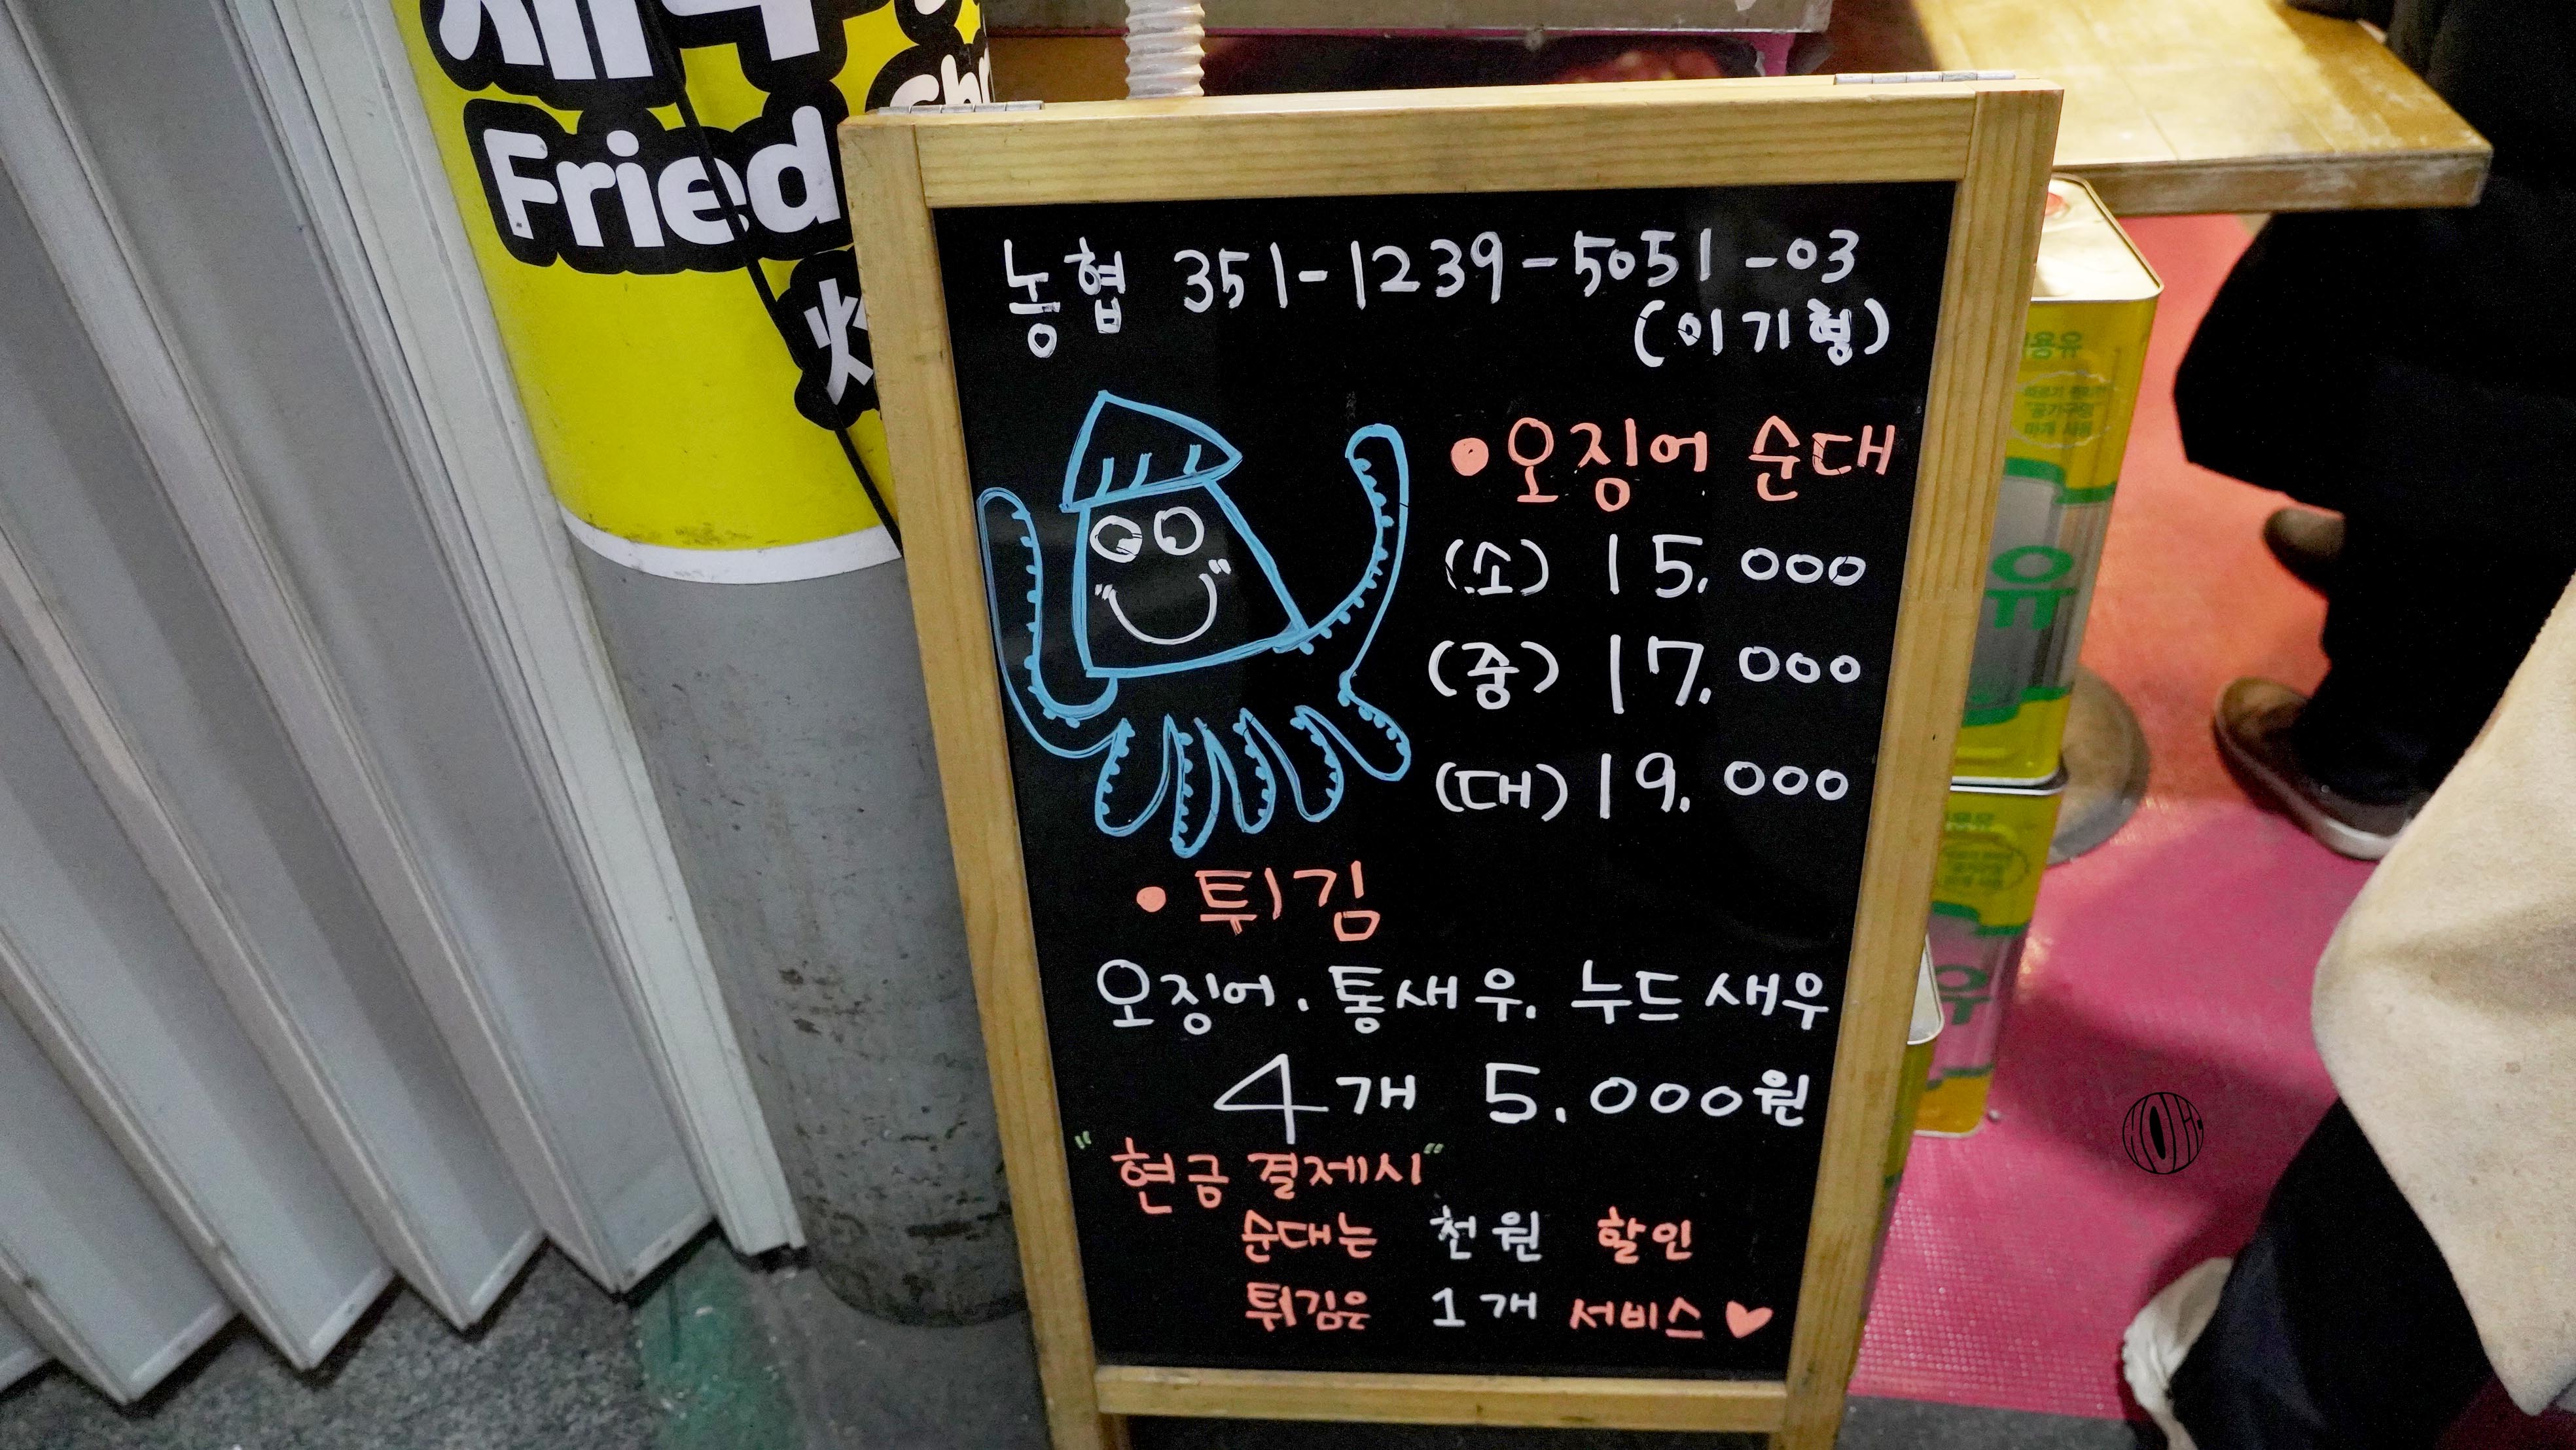 새우
Fried
농협 351-1239-5051-03
(이기형)
•오징어 순대
(소) 15.000
(중) 17.000
(대) 19.000
•튀김
오징어. 통새우. 누드새우
4개 5.000원
"현금 결제시"
순대는 천원 할인
튀김은 1개 서비스♥
유
유